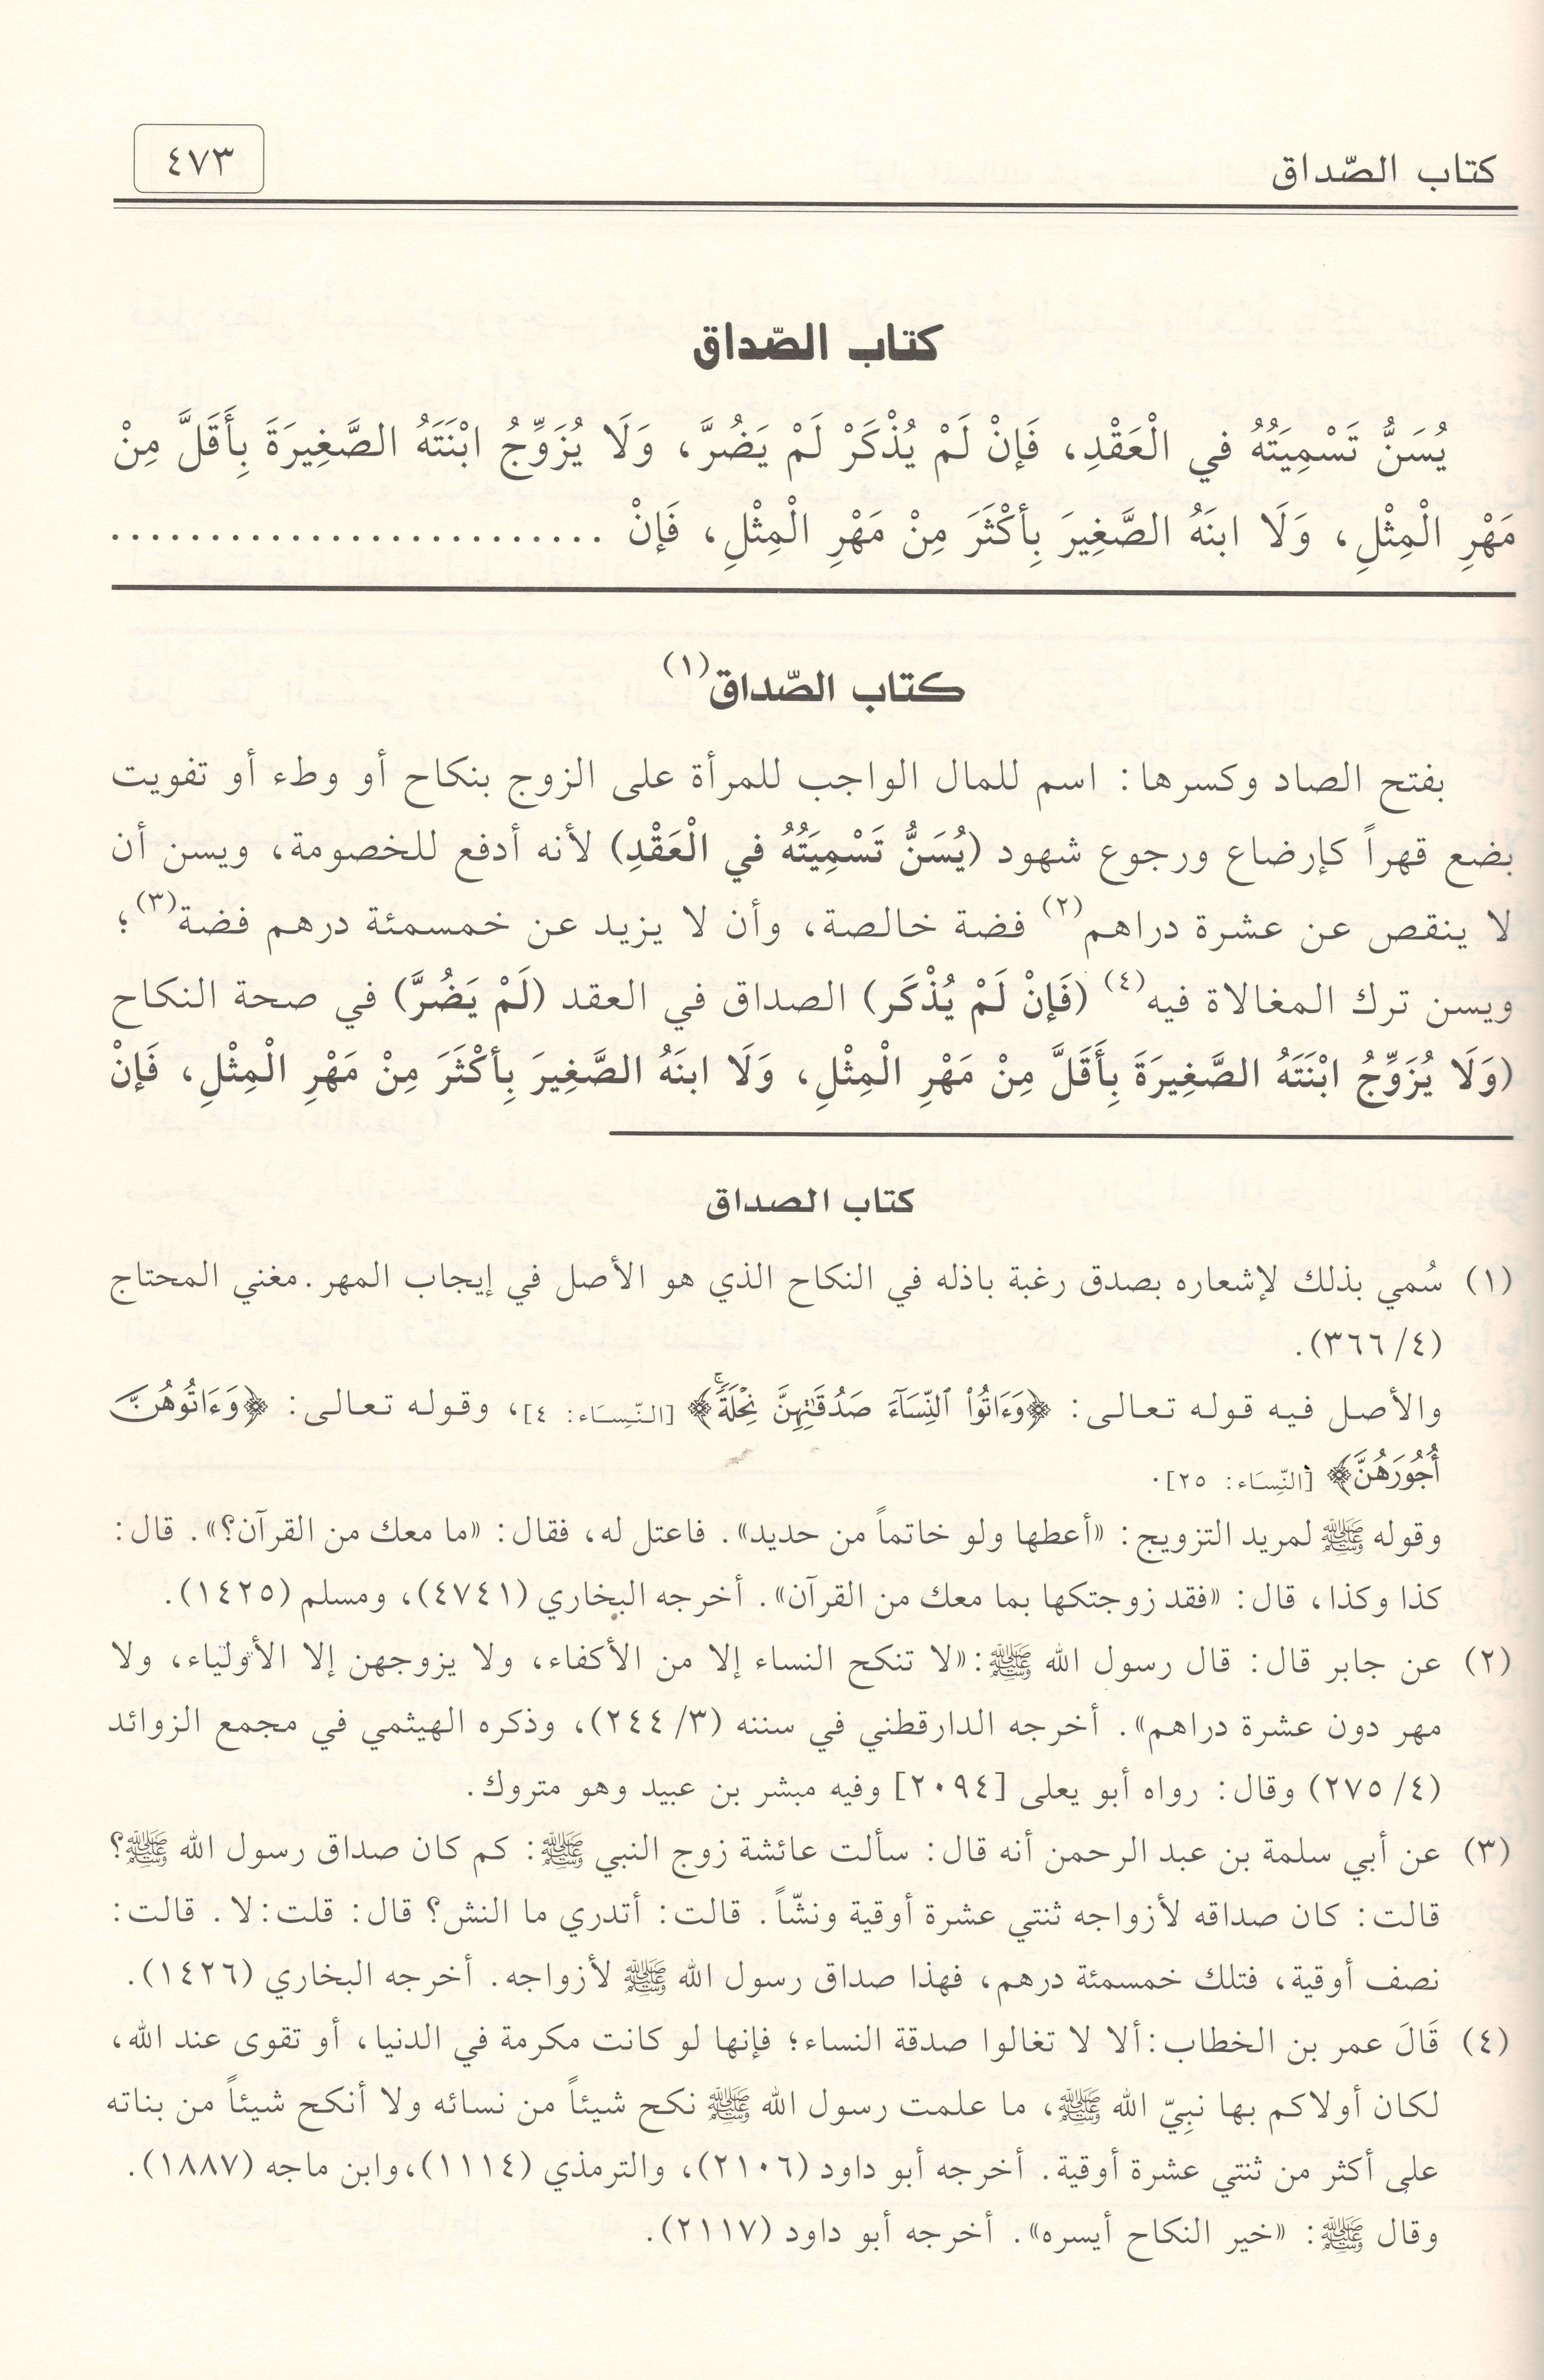 كتاب الصّداق
٤٧٣
كتاب الصّداق
يُسَنُّ تَسْمِيَتُهُ في الْعَقْدِ، فَإنْ لَمْ يُذْكَرْ لَمْ يَضُرَّ، وَلَا يُزَوِّجُ ابْنَتَهُ الصَّغِيرَةَ بِأَقَلَّ مِنْ
مَهْرِ الْمِثْلِ، وَلَا ابنَهُ الصَّغِيرَ بِأكْثَرَ مِنْ مَهْرِ الْمِثْلِ، فَإنْ ...........................
كتاب الصّداق(١)
بفتح الصاد وكسرها: اسم للمال الواجب للمرأة على الزوج بنكاح أو وطء أو تفويت
بضع قهراً كإرضاع ورجوع شهود (يُسَنُّ تَسْمِيَتُهُ في الْعَقْدِ) لأنه أدفع للخصومة، ويسن أن
لا ينقص عن عشرة دراهم(٢) فضة خالصة، وأن لا يزيد عن خمسمئة درهم فضة(٣)؛
ويسن ترك المغالاة فيه(٤) (فَإنْ لَمْ يُذْكَر) الصداق في العقد (لَمْ يَضُرَّ) في صحة النكاح
(وَلَا يُزَوِّجُ ابْنَتَهُ الصَّغِيرَةَ بِأَقَلَّ مِنْ مَهْرِ الْمِثْلِ، وَلَا ابنَهُ الصَّغِيرَ بِأكْثَرَ مِنْ مَهْرِ الْمِثْلِ، فَإنْ
كتاب الصداق
(١) سُمي بذلك لإشعاره بصدق رغبة باذله في النكاح الذي هو الأصل في إيجاب المهر. مغني المحتاج
(٤/ ٣٦٦).
والأصل فيه قوله تعالى: ﴿وَءَاتُوا۟ ٱلنِّسَآءَ صَدُقَٰتِهِنَّ نِحْلَةًۚ﴾ [النِّسَاء: ٤]، وقوله تعالى: ﴿وَءَاتُوهُنَّ
أُجُورَهُنَّ﴾ [النِّسَاء: ٢٥].
وقوله ﷺ لمريد التزويج: «أعطها ولو خاتماً من حديد». فاعتل له، فقال: «ما معك من القرآن؟». قال:
كذا وكذا، قال: «فقد زوجتكها بما معك من القرآن». أخرجه البخاري (٤٧٤١)، ومسلم (١٤٢٥).
(٢) عن جابر قال: قال رسول الله ﷺ:«لا تنكح النساء إلا من الأكفاء، ولا يزوجهن إلا الأولياء، ولا
مهر دون عشرة دراهم». أخرجه الدارقطني في سننه (٣/ ٢٤٤)، وذكره الهيثمي في مجمع الزوائد
(٤/ ٢٧٥) وقال: رواه أبو يعلى [٢٠٩٤] وفيه مبشر بن عبيد وهو متروك.
(٣) عن أبي سلمة بن عبد الرحمن أنه قال: سألت عائشة زوج النبي ﷺ: كم كان صداق رسول الله ﷺ؟
قالت: كان صداقه لأزواجه ثنتي عشرة أوقية ونشّاً. قالت: أتدري ما النش؟ قال: قلت:لا. قالت:
نصف أوقية، فتلك خمسمئة درهم، فهذا صداق رسول الله ﷺ لأزواجه. أخرجه البخاري (١٤٢٦).
(٤) قَالَ عمر بن الخطاب:ألا لا تغالوا صدقة النساء؛ فإنها لو كانت مكرمة في الدنيا، أو تقوى عند الله،
لكان أولاكم بها نبِيّ الله ﷺ، ما علمت رسول الله ﷺ نكح شيئاً من نسائه ولا أنكح شيئاً من بناته
على أكثر من ثنتي عشرة أوقية. أخرجه أبو داود (٢١٠٦)، والترمذي (١١١٤)،وابن ماجه (١٨٨٧).
وقال ﷺ: «خير النكاح أيسره». أخرجه أبو داود (٢١١٧).